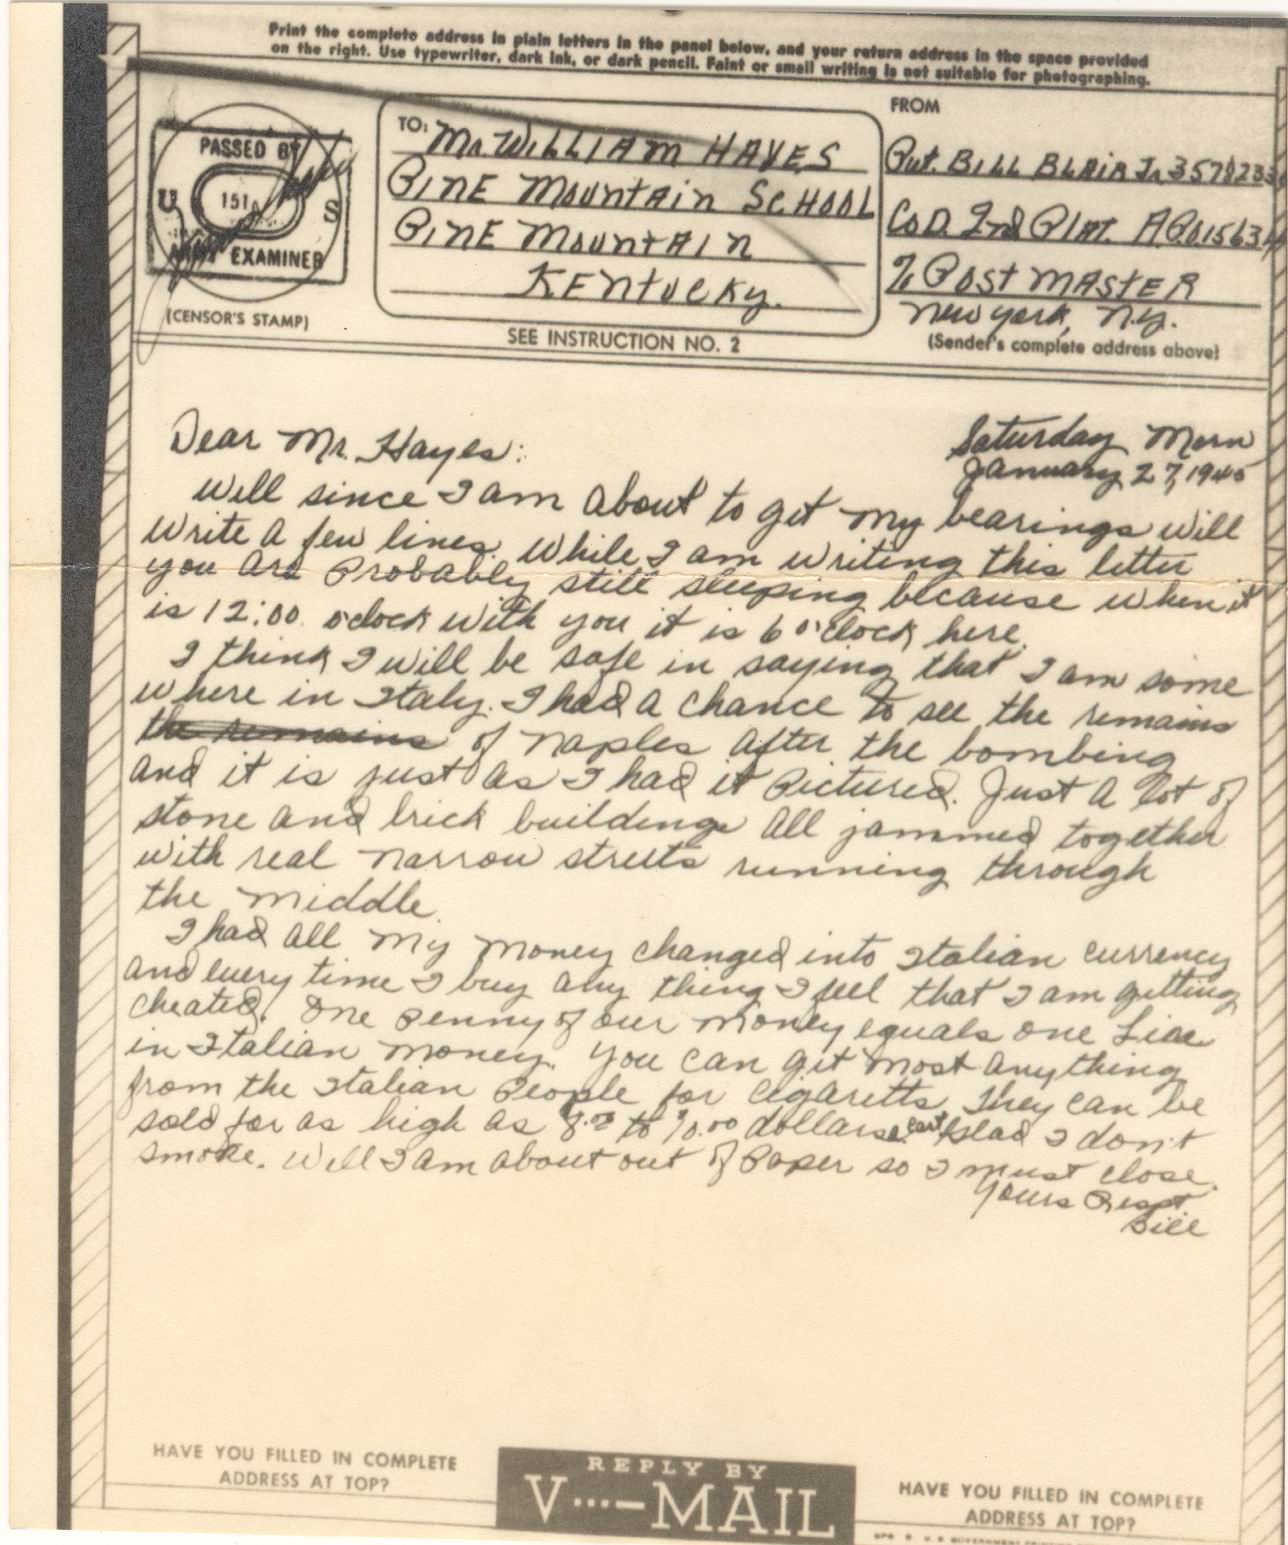 Print the complete address in plain letters in the panel below, and your return address in the space provided
on the right. Use typewriter, dark ink, or dark pencil. Faint or small writing is not suitable for photographing.
PASSED BY
U 151 S
EXAMINER
(CENSOR'S STAMP)
TO:
Mr. WILLIAM HAYES
PINE MOUNTAIN SCHOOL
PINE MOUNTAIN
KENTUCKY.
SEE INSTRUCTION NO. 2
FROM
Pvt. BILL BLAIR Jr.
Co D. 2nd Plat. APO
% POST MASTER
New York, N.Y.
(Sender's complete address above)
Saturday Morn
January 27, 1945
Dear Mr. Hayes:
Will since I am about to get my bearings will
write a few lines. While I am writing this letter
you are Probably still sleeping because when it
is 12:00 o'clock with you it is 6 o'clock here.
I think I will be safe in saying that I am some
where in Italy. I had a chance to see the remains
the remains of Naples after the bombing
and it is just as I had it Pictured. Just a lot of
stone and brick buildings all jammed together
with real narrow streets running through
the middle.
I had all my money changed into Italian currency
and every time I buy any thing I feel that I am getting
cheated. One penny of our money equals one Liae
in Italian money. You can get most anything
from the Italian People for cigaretts they can be
sold for as high as 8.00 to 10.00 dollars a cart. Glad I don't
smoke. Well I am about out of Paper so I must close.
Yours Respt.
Bill
HAVE YOU FILLED IN COMPLETE
ADDRESS AT TOP?
REPLY BY
V···—MAIL
HAVE YOU FILLED IN COMPLETE
ADDRESS AT TOP?